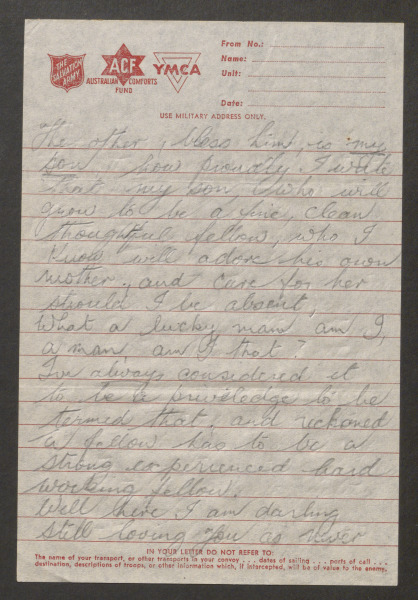 THE SALVATION ARMY
ACF
AUSTRALIAN COMFORTS FUND
YMCA
From No.:
Name:
Unit:
Date:
USE MILITARY ADDRESS ONLY.
The other, bless him, is my
son, how proudly I write
that my son who will
grow to be a fine, clean
thoughtful fellow, who I
know will adore his own
Mother, and care for her
should I be absent,
What a lucky man am I,
a man, am I that?
I've always considered it
to be a priviledge to be
termed that, and reckoned
a fellow has to be a
strong experienced hard
working fellow.
Well here I am darling
still loving you as never
IN YOUR LETTER DO NOT REFER TO:
The name of your transport, or other transports in your convoy . . . dates of sailing . . . ports of call . . .
destination, descriptions of troops, or other information which, if intercepted, will be of value to the enemy.